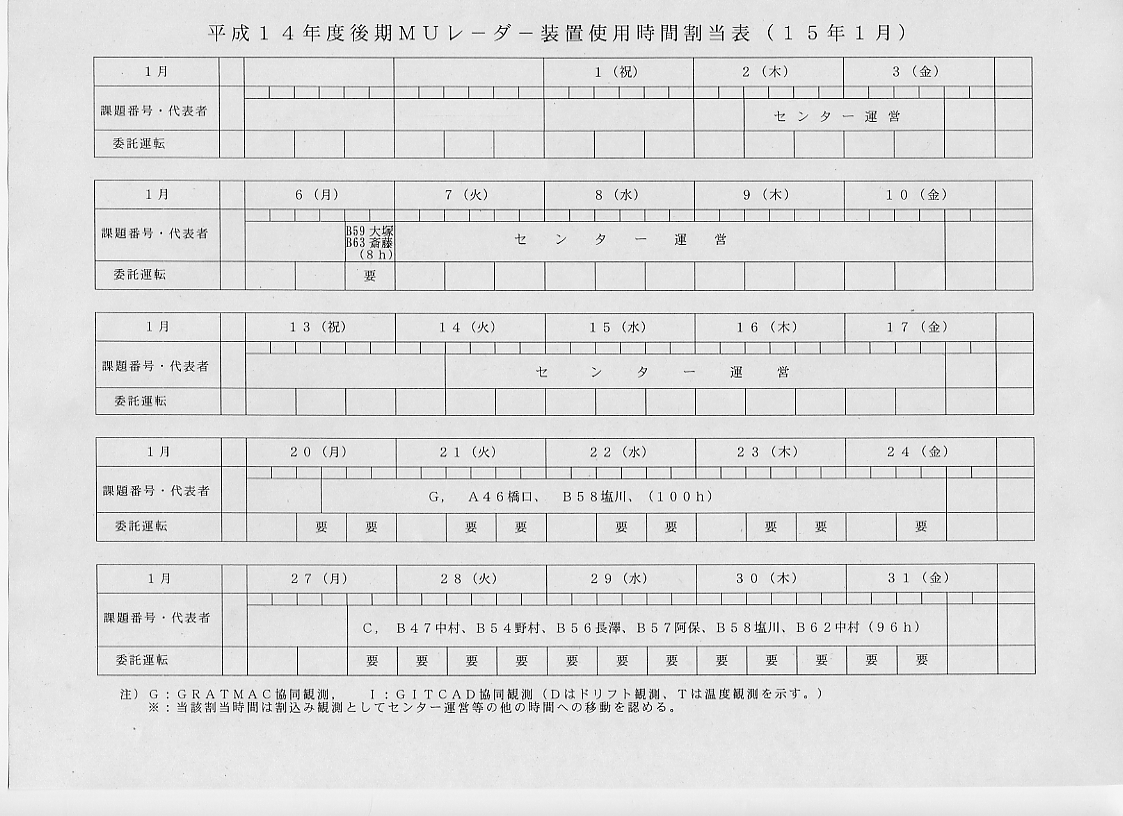 平成１４年度後期ＭＵレ－ダ－装置使用時間割当表（１５年１月）
１月 １（祝） ２（木） ３（金）
課題番号・代表者 センター運営
委託運転
１月 ６（月） ７（火） ８（水） ９（木） １０（金）
課題番号・代表者 B59 大塚 センター運営
B63 斎藤
（８ｈ）
委託運転 要
１月 １３（祝） １４（火） １５（水） １６（木） １７（金）
課題番号・代表者 センター運営
委託運転
１月 ２０（月） ２１（火） ２２（水） ２３（木） ２４（金）
課題番号・代表者 Ｇ， Ａ４６橋口、 Ｂ５８塩川、（１００ｈ）
委託運転 要 要 要 要 要 要 要 要 要
１月 ２７（月） ２８（火） ２９（水） ３０（木） ３１（金）
課題番号・代表者 Ｃ， Ｂ４７中村、Ｂ５４野村、Ｂ５６長澤、Ｂ５７阿保、Ｂ５８塩川、Ｂ６２中村（９６ｈ）
委託運転 要 要 要 要 要 要 要 要 要 要 要 要
注）Ｇ：ＧＲＡＴＭＡＣ協同観測， Ｉ：ＧＩＴＣＡＤ協同観測（Ｄはドリフト観測、Ｔは温度観測を示す。）
※：当該割当時間は割込み観測としてセンター運営等の他の時間への移動を認める。